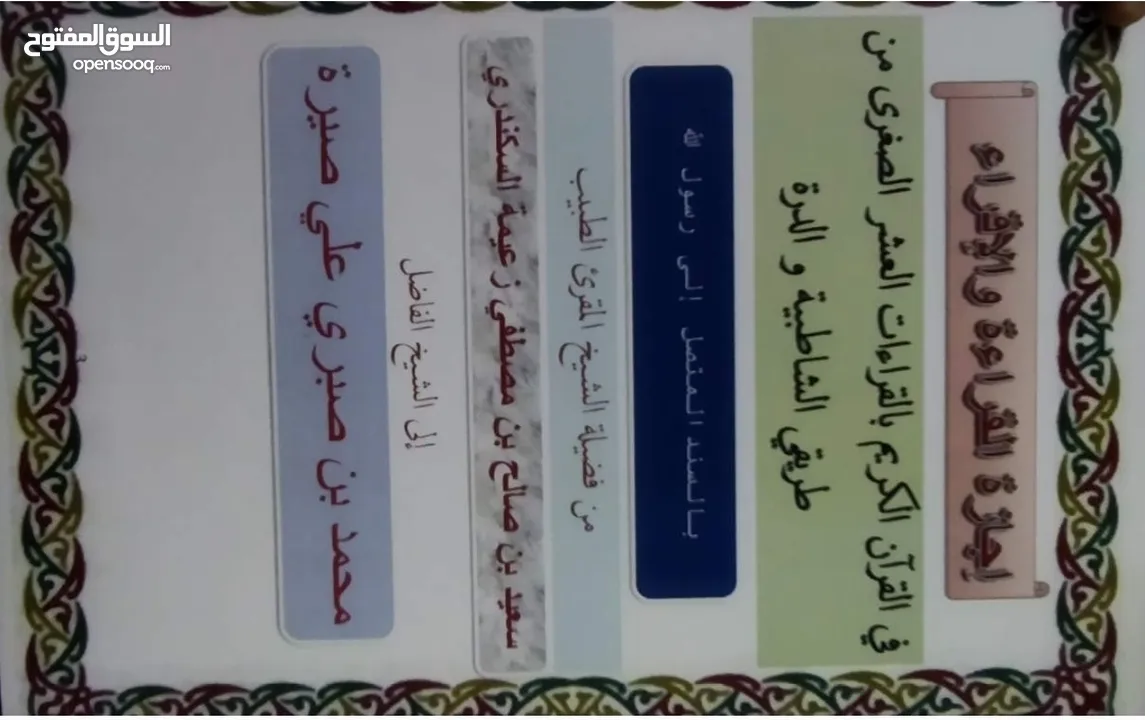 السوق المفتوح
opensooq.com
إجازة القراءة والإقراء
في القرآن الكريم بالقراءات العشر الصغرى من
طريقي الشاطبية و الدرة
بالسند المتصل إلى رسول الله
من فضيلة الشيخ المقرئ الطبيب
سعيد بن صالح بن مصطفي زعيمة السكندري
إلى الشيخ الفاضل
محمد بن صبري علي صبيرة